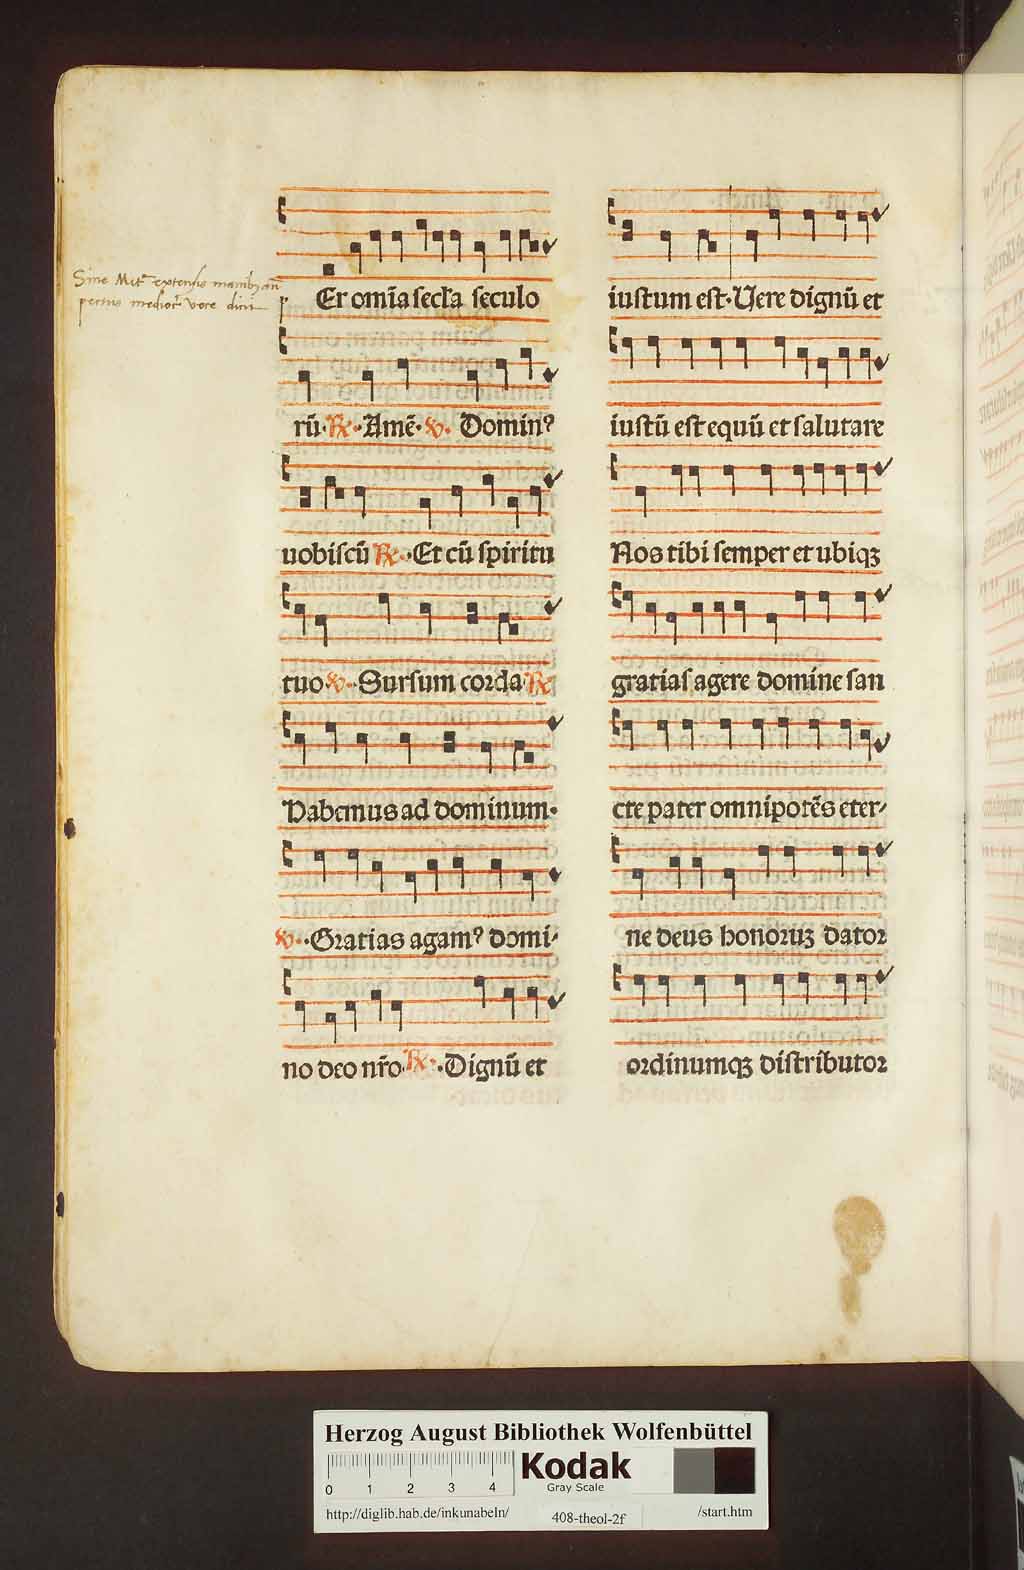 Sine Met extensis manibus
vore dicit
p Er om̄ia secl̄a seculo
rū· ℟·Amē· ℣· Domin⁹
uobiscū ℟·Et cū spiritu
tuo ℣·Sursum corda ℟
Habemus ad dominum·
℣·Gratias agam⁹ domi
no deo nr̄o· ℟·Dignū et
iustum est·Uere dignū et
iustū est equū et salutare
Nos tibi semper et ubiqꝫ
gratias agere domine san
cte pater omnipotēs eter/
ne deus honoruꝫ dator
ordinumqꝫ distributor
Herzog August Bibliothek Wolfenbüttel
0 1 2 3 4
Kodak
Gray Scale
http://diglib.hab.de/inkunabeln/ 408-theol-2f /start.htm